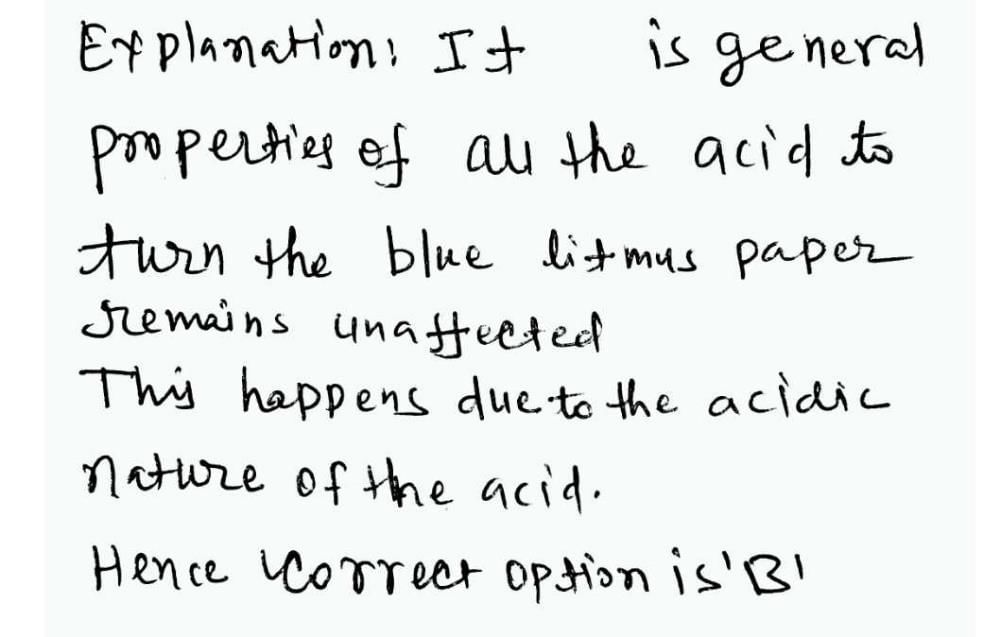 Explanation: It is general
properties of all the acid to
turn the blue litmus paper
remains unaffected
This happens due to the acidic
nature of the acid.
Hence correct option is 'B'